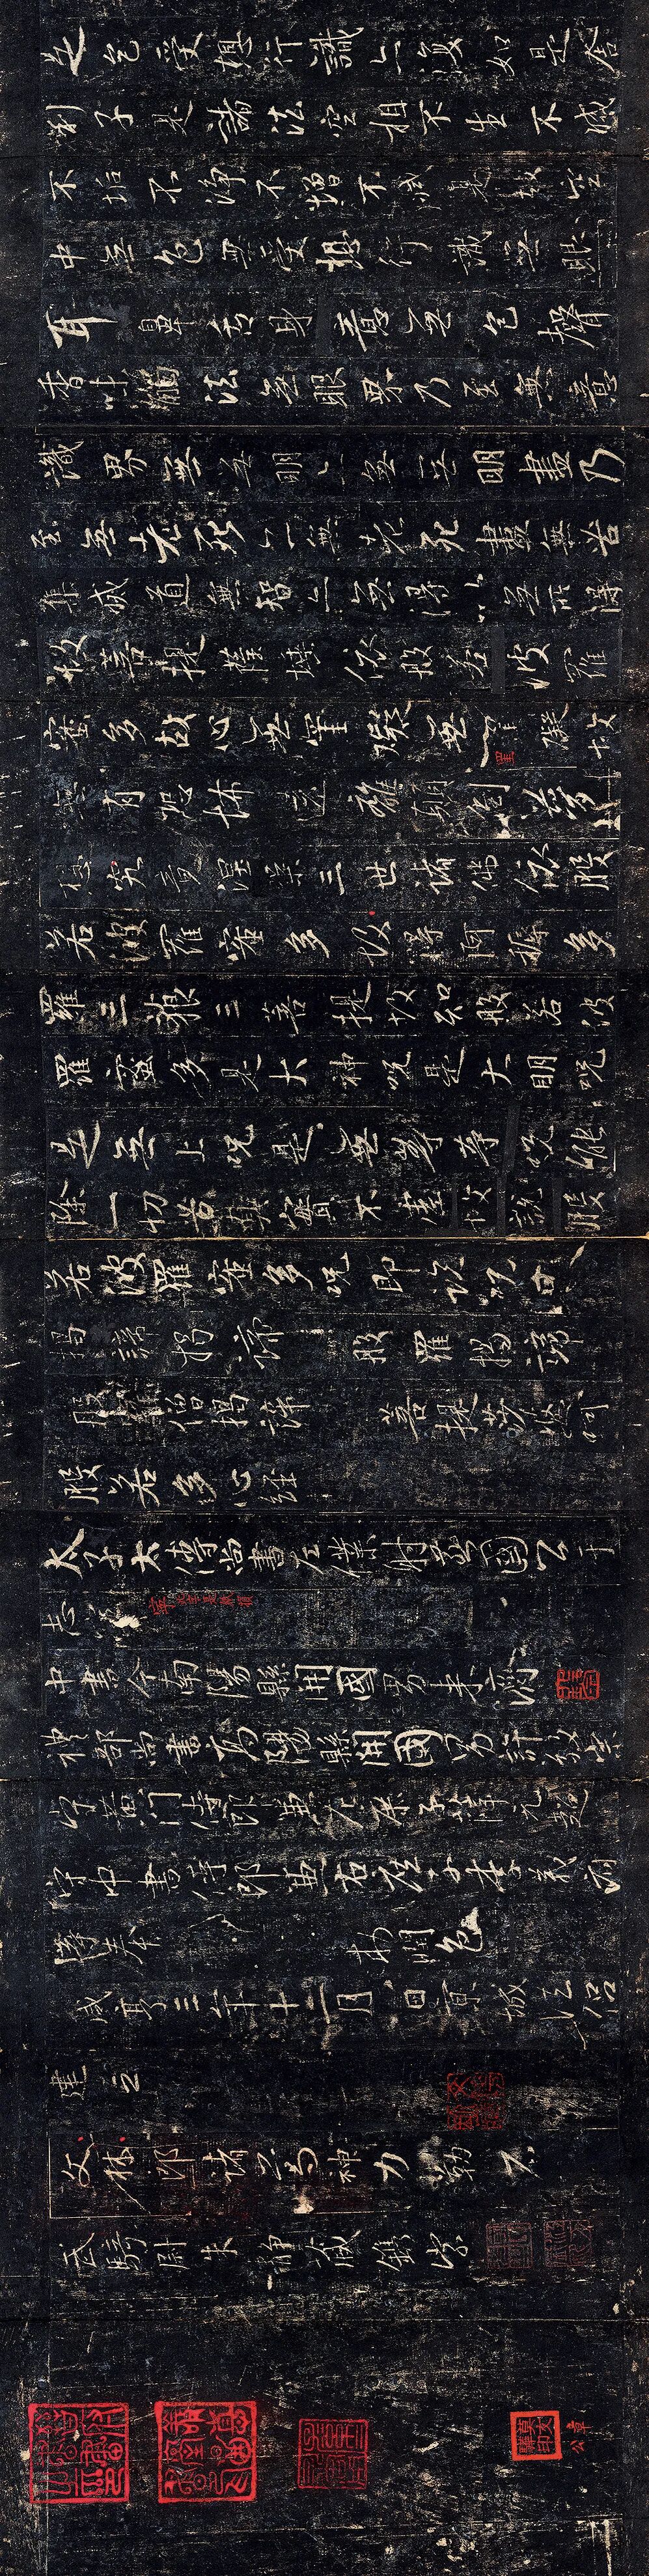 是色受想行識亦復如是舍
利子是諸法空相不生不滅
不垢不淨不增不減是故空
中無色無受想行識無眼
耳鼻舌身意無色聲
香味觸法無眼界乃至無意
識界無無明亦無無明盡乃
至無老死亦無老死盡無苦
集滅道無智亦無得以無所得
故菩提薩埵依般若波羅
蜜多故心無罣礙無罣礙故
無有恐怖遠離顛倒夢
想究竟涅槃三世諸佛依般
若波羅蜜多故得阿耨多
羅三藐三菩提故知般若波
羅蜜多是大神咒是大明咒
是無上咒是無等等咒能
除一切苦真實不虛故說般
若波羅蜜多咒即說咒曰
揭諦揭諦 般羅揭諦
般羅僧揭諦 菩提莎婆呵
般若多心經
太子太傅尚書左僕射燕國公于
志
中書令南陽縣開國男來濟
禮部尚書高陽縣開國男許敬宗
守黃門侍郎兼左庶子薛元超
守中書侍郎兼右庶子李義府
等奉 敕潤色
咸亨三年十二月日京城法侶
建立
文林郎諸葛神力勒石
武騎尉朱靜藏鐫字